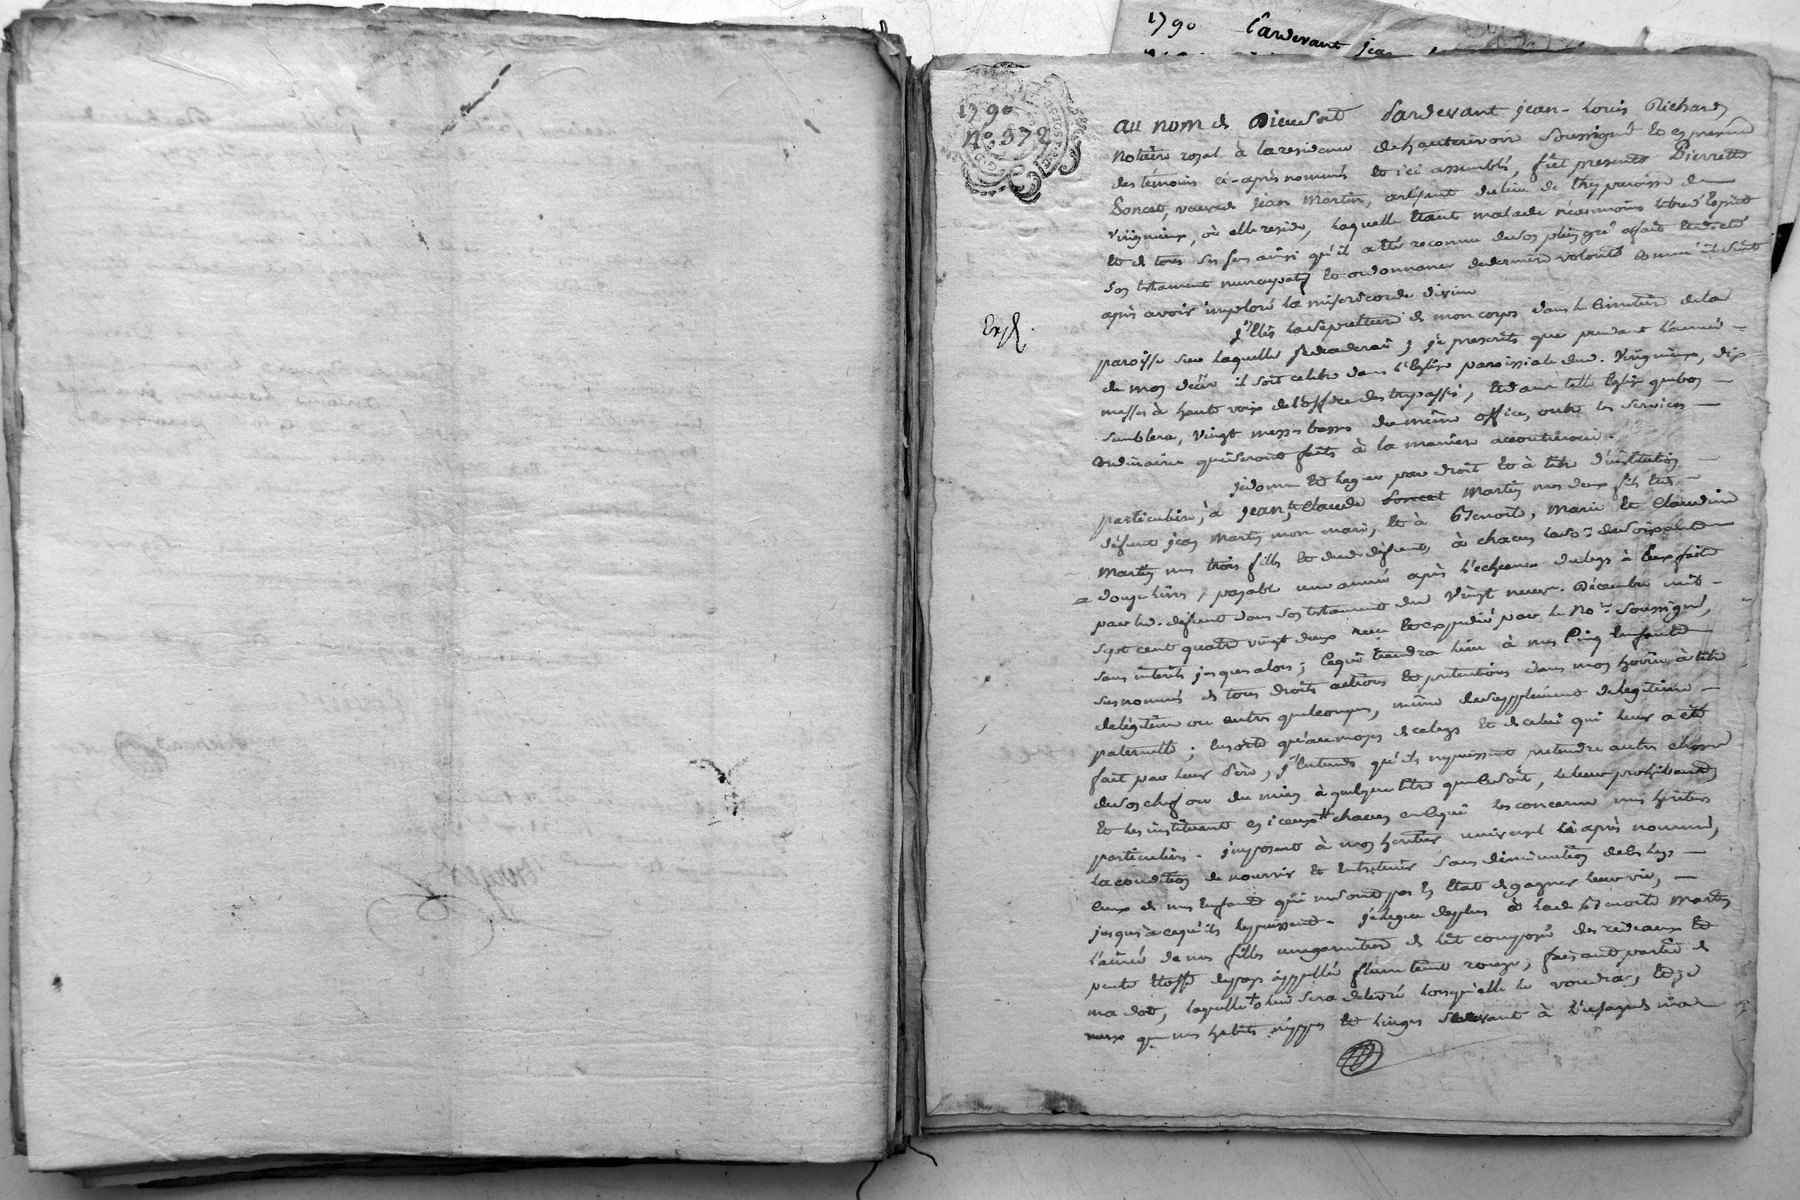 1790 Pardevant jean
1790
N.° 372
au nom de Dieu soit Pardevant jean-Louis Richard
Notaire royal à la residence de hauterivoire soussigné et en presence
des témoins ci-après nommés et ici assemblés, fût presente Pierrette
Poncet, veuve de jean Martin, artisant du lieu de thy paroisse de
Virigneux, où elle reside, laquelle étant malade néanmoins libre d'esprit
et de tous ses sens ainsi qu'il a été reconnu de son plein gré a fait et dicté
son testament nuncupatif et ordonnance de derniere volonté comme il suit
après avoir imploré la misericorde divine
Exp.
j'Elis la sepulture de mon corps dans le cimetiere de la
paroisse sur laquelle je decederai; je prescrits que pendant l'année
de mon decès il soit celebré dans l'Eglise paroissiale dud. Virigneux, dix
messes à haute voix de l'office des trepassés, et dans telle Eglise que bon
semblera, vingt messes basses du même office, outre les services
ordinaires qui seront faits à la maniere accoutumée.
je donne et legue par droit et à titre d'institution
particuliere, à jean, et Claude Poncet Martin mes deux fils et du
défunt jean Martin mon mari, et à Benoite, Marie et Claudine
Martin mes trois filles et dud. défunt, à chacun la so.e de soixante
douze livres, payable une année après l'echeance du legs à Eux fait
par led. défunt dans son testament du vingt neuf Décembre mil
sept cent quatre vingt deux reçu et expedié par le No.re soussigné,
sans interêts jusques alors; ce qui tiendra lieu à mes Cinq Enfants
susnommés de tous droits actions et pretentions dans mon hoirie à titre
de légitime ou autres quelconques, même de supplement de legitime
paternelle; en sorte qu'au moyen de ce legs et de celui qui leur a été
fait par leur Pere, j'entends qu'ils ne puissent pretendre autre chose
de son chef ou du mien à quelque titre que ce soit, le leur prohibant
et les instituant en iceux chacun en ce qui les concerne mes heritiers
particuliers. imposant à mon heritier universel ci après nommé,
la condition de nourrir et entretenir sans diminution de les legs
ceux de mes Enfants qui ne sont pas en Etat de gagner leur vie,
jusqu'à ce qu'ils le puissent. je legue de plus à lad. Benoite Martin
l'ainée de mes filles une garniture de lit composée des rideaux et
pente Etoffe du pays appellée teint rouge, faisant partie de
ma dot, laquelle lui sera delivrée lorsqu'elle le voudra, et
que mes habits nippes et linges servant à l'usage de ma